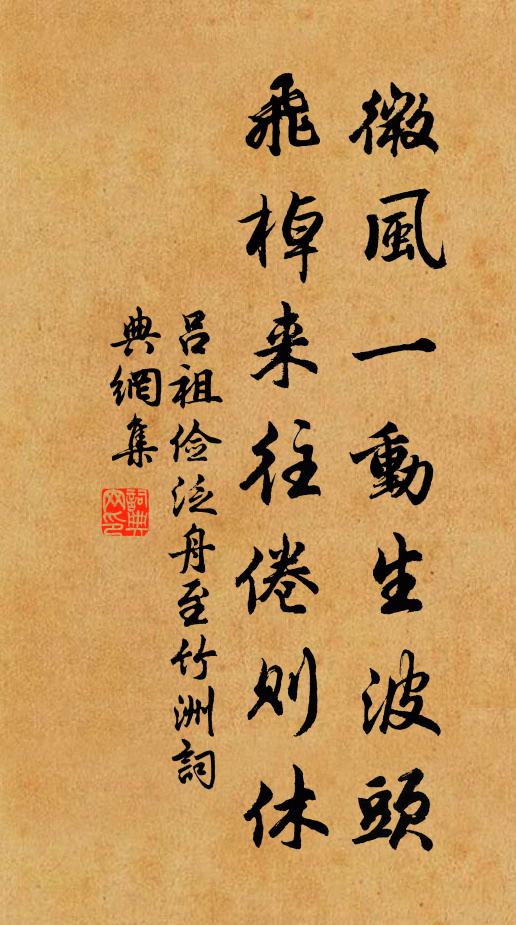 微風一動生波頭
飛棹来往倦則休
吕祖俭泛舟至竹洲詞
典網集
詞典网印